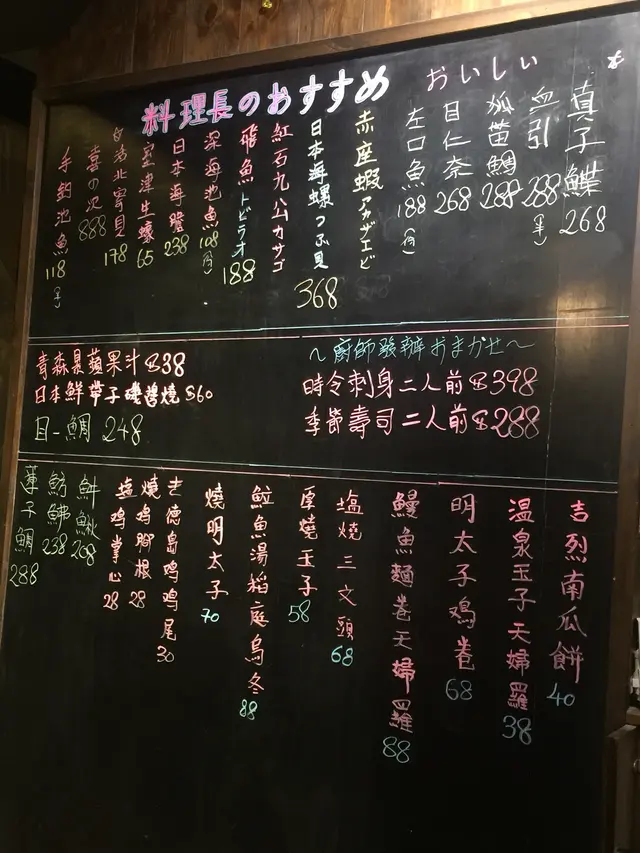 料理長のおすすめ
おいしい
真子鰈 268
血引 288 (半)
狐苗鯛 288
目仁奈 268
左口魚 188
赤座蝦 アカザエビ
日本海螺つぶ貝 368
紅石九公カサゴ
飛魚トビウオ 188
深海池魚 108
日本海膽 238
室津生蠔 65
寄貝 178
喜の次 888
手釣池魚 118
青森県蘋果汁 $38
日本鮮帶子磯邊燒 $60
目一鯛 248
～廚師發辦おまかせ～
時令刺身二人前 $398
季節壽司二人前 $288
吉烈南瓜餅 40
溫泉玉子天婦羅 38
明太子鸡卷 68
鰻魚麵卷天婦羅 88
塩燒三文頭 68
厚燒玉子 58
魚湯稻庭烏冬 88
燒明太子 70
德島鸡鸡尾 30
燒鸡腳根 28
塩鸡掌心 28
268
魴鮄 238
子鯛 288